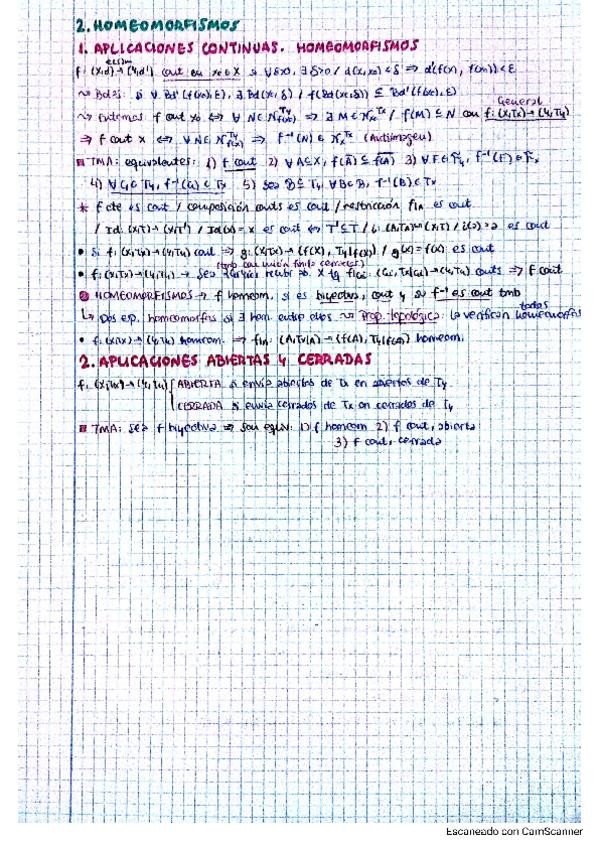 2. HOMEOMORFISMOS
1. APLICACIONES CONTINUAS. HOMEOMORFISMOS
f: (X,d) → (Y,d') cont en x₀∈X si ∀ε>0, ∃δ>0 / d(x,x₀)<δ ⇒ d'(f(x), f(x₀))<ε
↝ Bolas: si ∀ Bd'(f(x₀),ε), ∃ Bd(x₀,δ) / f(Bd(x₀,δ)) ⊆ Bd'(f(x₀),ε)
General
↝ Entornos f cont x₀ ⇔ ∀ N∈ ⇒ ∃ M∈ / f(M) ⊆ N con f: (X,Tx) → (Y,Ty)
⇒ f cont x ⇔ ∀ N∈ ⇒ f⁻¹(N) ∈ (Antiimagen)
TMA: equivalentes: 1) f cont 2) ∀A⊆X, f(A̅) ⊆ 3) ∀F∈ , f⁻¹(F) ∈
4) ∀G∈Ty, f⁻¹(G) ∈ Tx 5) sea B⊆Ty, ∀B∈B, f⁻¹(B)∈Tx
* f cte es cont / composición conts es cont / restricción f|A es cont
/ Id: (X,T) → (X,T') / Id(x)=x es cont ⇔ T'⊆T / i: (A,TA) → (X,T) / i(a)=a es cont
• Si f: (X,Tx) → (Y,Ty) cont ⇒ g: (X,Tx) → (f(X), Ty|f(X)) / g(x)=f(x) es cont
(tmb con unión finita cerrados)
• f: (X,Tx) → (Y,Ty) → sea recubr ab. X tq f|Gi: (Gi, Tx|Gi) → (Y,Ty) conts ⇒ f cont
HOMEOMORFISMOS → f homeom. si es biyectiva, cont y su f⁻¹ es cont tmb
↳ Dos esp. homeomorfos si ∃ hom. entre ellos ↝ Prop. topológica: la verifican todos homeomorfos
• f: (X,Tx) → (Y,Ty) homeom. ⇒ f|A: (A,Tx|A) → (f(A), Ty|f(A)) homeom.
2. APLICACIONES ABIERTAS Y CERRADAS
f: (X,Tx) → (Y,Ty) ABIERTA si envía abiertos de Tx en abiertos de Ty
CERRADA si envía cerrados de Tx en cerrados de Ty
TMA: sea f biyectiva ⇒ son equiv: 1) f homeom 2) f cont, abierta
3) f cont, cerrada
Escaneado con CamScanner